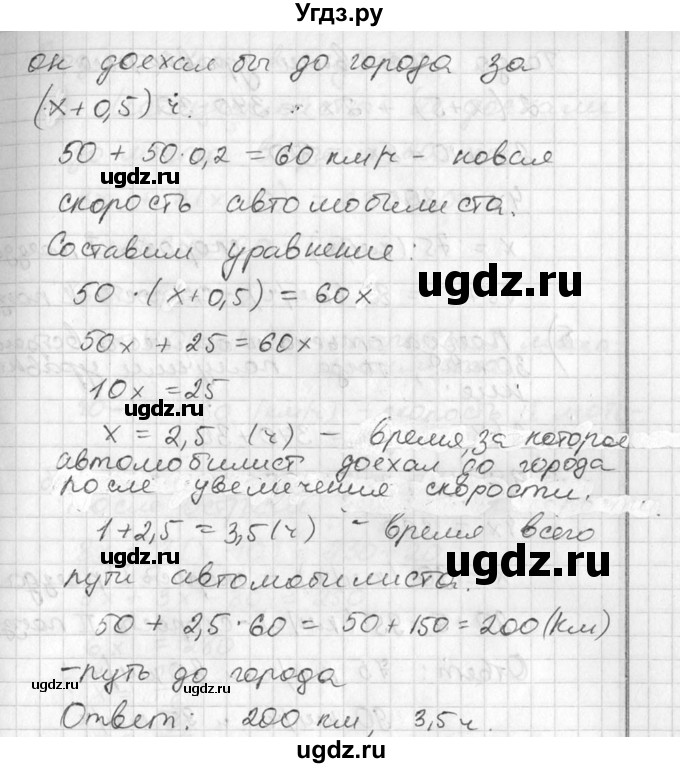 Угдз.ру
он доехал бы до города за
(х+0,5) ч.
50 + 50·0,2 = 60 км/ч - новая
ugdz.ru
скорость автомобилиста.
Составим уравнение:
50 · (х+0,5) = 60х
ugdz.ru
50х + 25 = 60х
10х = 25
ugdz.ru
х = 2,5 (ч) - время, за которое
автомобилист доехал до города
после увеличения скорости.
1+2,5 = 3,5 (ч) - время всего
ugdz.ru
пути автомобилиста.
50 + 2,5·60 = 50+150 = 200 (км)
- путь до города
ugdz.ru
ugdz.ru
Ответ: 200 км, 3,5 ч.
ugdz.ru